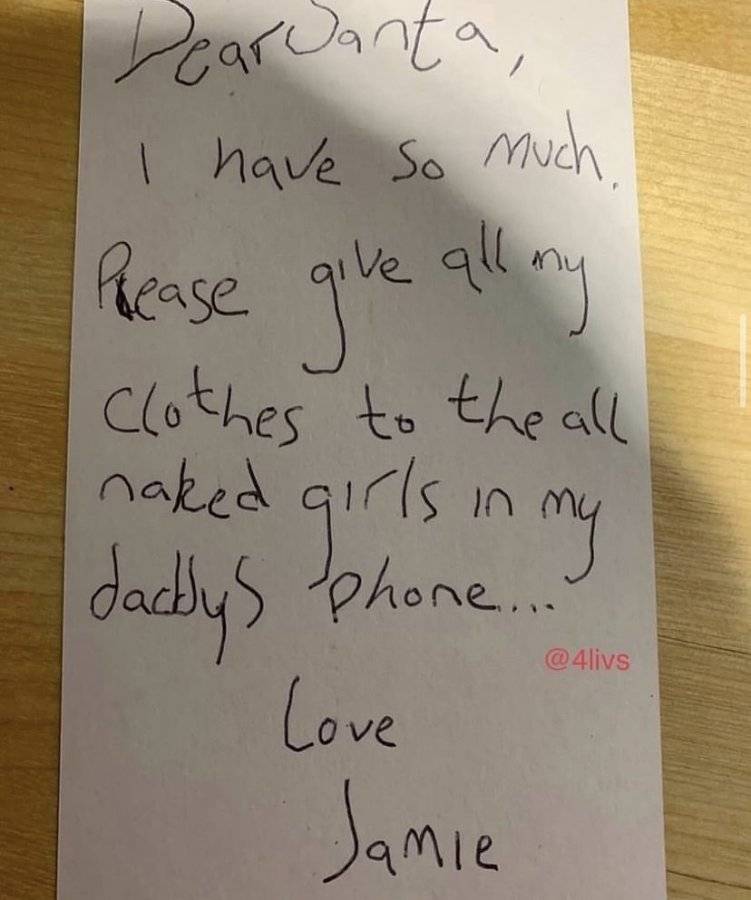 Dear Santa,
I have so much.
Please give all my
clothes to the all
naked girls in my
daddys phone....
@4livs
Love
Jamie